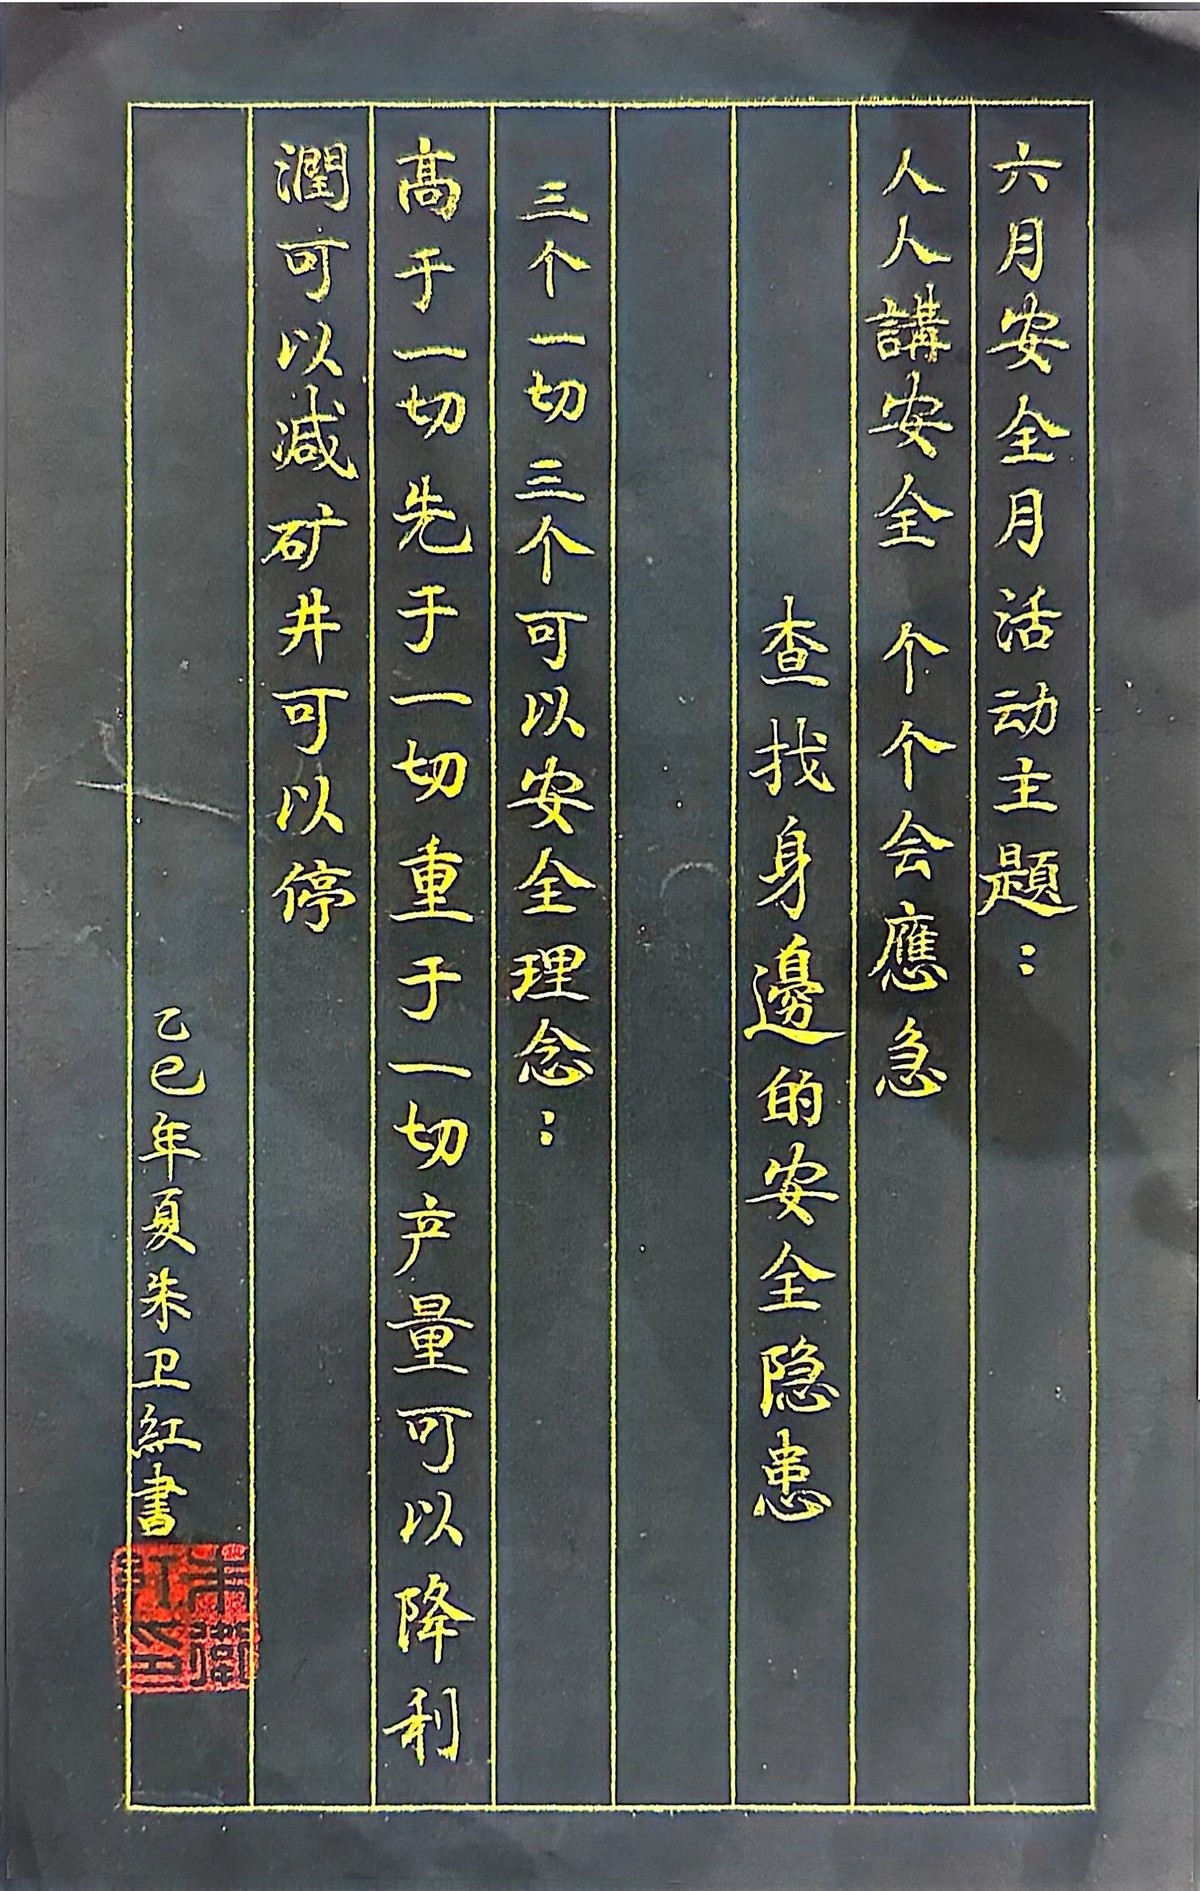 六月安全月活动主题：
人人講安全 个个会應急
查找身邊的安全隐患
三个一切三个可以安全理念：
高于一切先于一切重于一切产量可以降利
潤可以减矿井可以停
乙巳年夏朱卫紅書
朱衛紅印